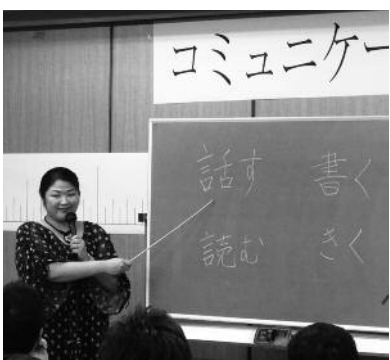 コミュニケー
話す 書く
読む きく